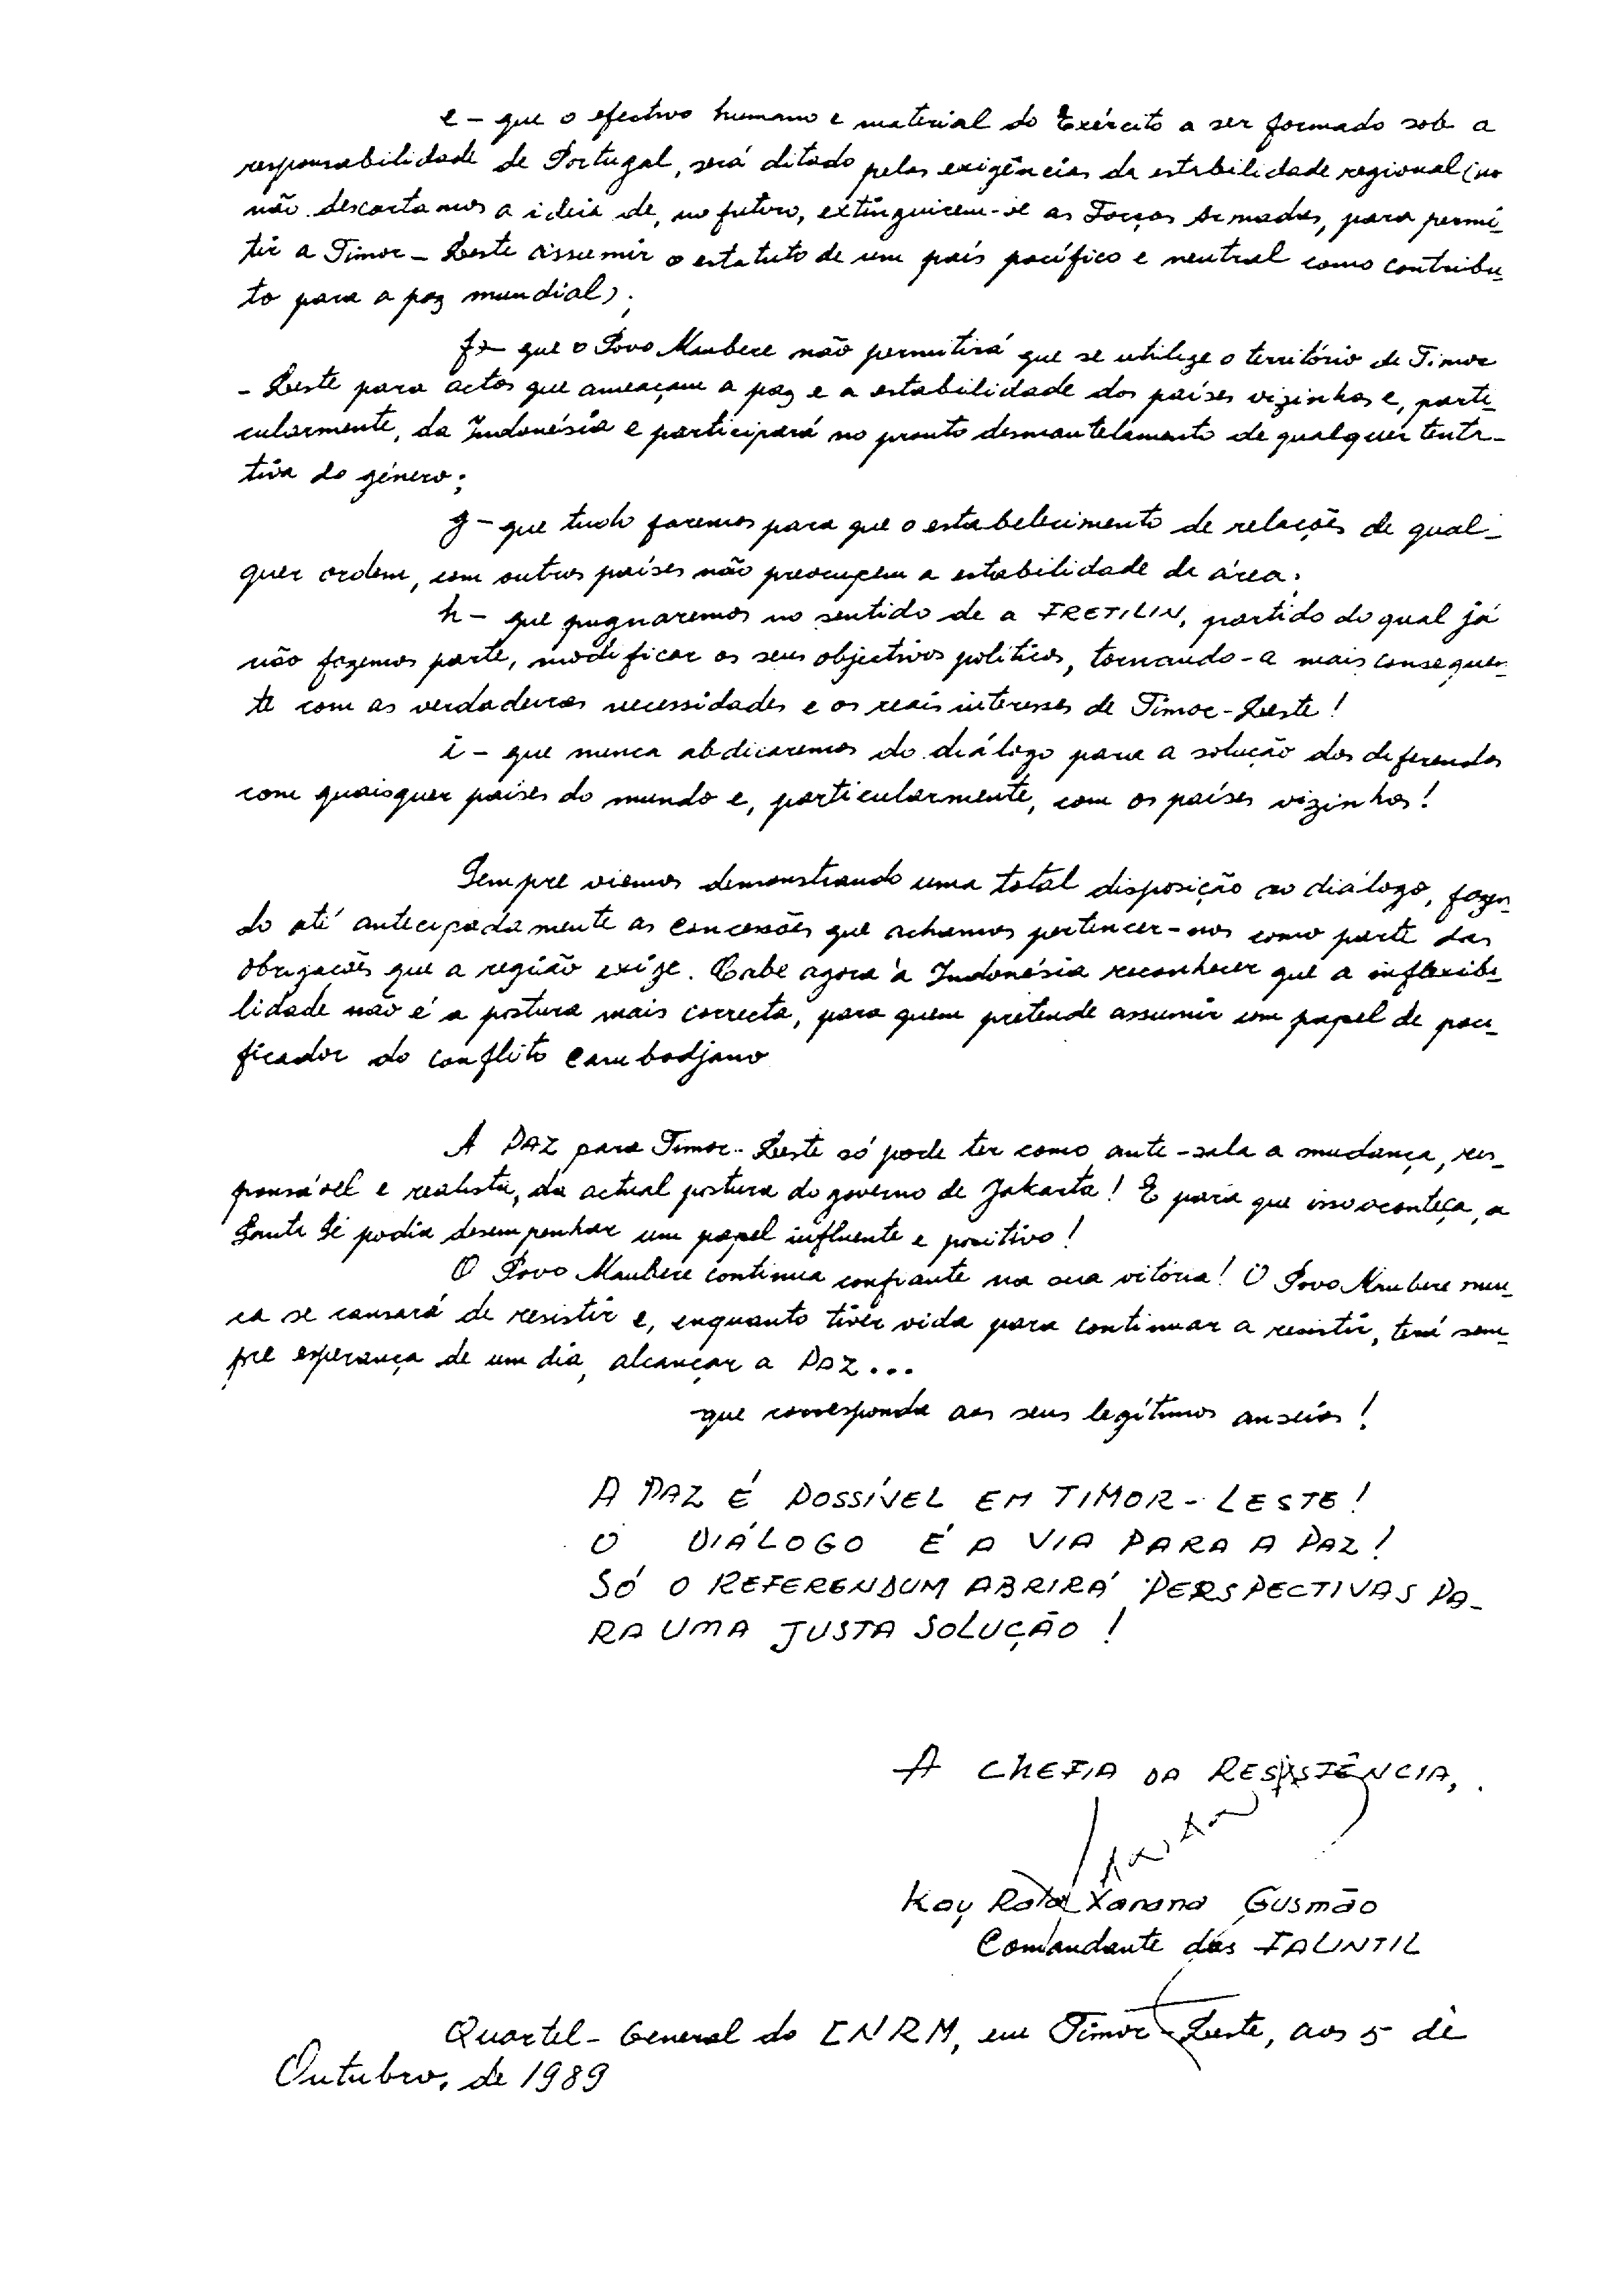 e - que o efectivo humano e material do Exército a ser formado sob a
responsabilidade de Portugal, será ditado pelas exigências da estabilidade regional (
não descartamos a ideia de, no futuro, extinguirem-se as Forças Armadas, para permi-
tir a Timor-Leste assumir o estatuto de um país pacífico e neutral como contribu-
to para a paz mundial);
f - que o Povo Maubere não permitirá que se utilize o território de Timor
-Leste para actos que ameaçam a paz e a estabilidade dos países vizinhos e, parti-
cularmente, da Indonésia e participará no pronto desmantelamento de qualquer tenta-
tiva do género;
g - que tudo faremos para que o estabelecimento de relações de qual-
quer ordem, com outros países não preocupem a estabilidade da área;
h - que pugnaremos no sentido de a FRETILIN, partido do qual já
não fazemos parte, modificar os seus objectivos políticos, tornando-a mais consequen-
te com as verdadeiras necessidades e os reais interesses de Timor-Leste!
i - que nunca abdicaremos do diálogo para a solução dos diferendos
com quaisquer países do mundo e, particularmente, com os países vizinhos!
Sempre viemos demonstrando uma total disposição ao diálogo, fazen-
do até antecipadamente as concessões que achamos pertencer-nos como parte das
obrigações que a região exige. Cabe agora à Indonésia reconhecer que a inflexibi-
lidade não é a postura mais correcta, para quem pretende assumir um papel de paci-
ficador do conflito cambodjano
A PAZ para Timor-Leste só pode ter como ante-sala a mudança, res-
ponsável e realista, da actual postura do governo de Jakarta! E para que isso aconteça, a
Santa Sé podia desempenhar um papel influente e positivo!
O Povo Maubere continua confiante na sua vitória! O Povo Maubere nun-
ca se cansará de resistir e, enquanto tiver vida para continuar a resistir, terá sem-
pre esperança de um dia, alcançar a PAZ...
que corresponda aos seus legítimos anseios!
A PAZ É POSSÍVEL EM TIMOR-LESTE!
O DIÁLOGO É A VIA PARA A PAZ!
SÓ O REFERENDUM ABRIRÁ PERSPECTIVAS PA-
RA UMA JUSTA SOLUÇÃO!
A CHEFIA DA RESISTÊNCIA,
Kay Rala Xanana Gusmão
Comandante das FALINTIL
Quartel-General do CNRM, em Timor-Leste, aos 5 de
Outubro, de 1989